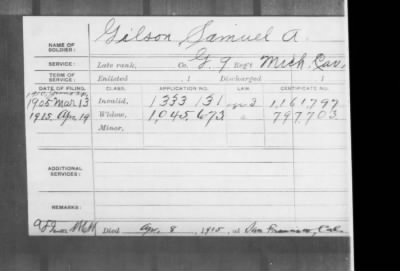 NAME OF SOLDIER: Gilson, Samuel A.
SERVICE: Late rank, Co. G, 9 Reg't Mich. Cav.,
TERM OF SERVICE: Enlisted , 1 Discharged , 1
DATE OF FILING. CLASS. APPLICATION NO. LAW. CERTIFICATE NO.
1905 Mar 13 Invalid, 1333131 1,161,797
1915 Apr 19 Widow, 1,045,673 797,703
Minor,
ADDITIONAL SERVICES:
REMARKS:
Died Apr. 8, 1915, at San Francisco, Cal.